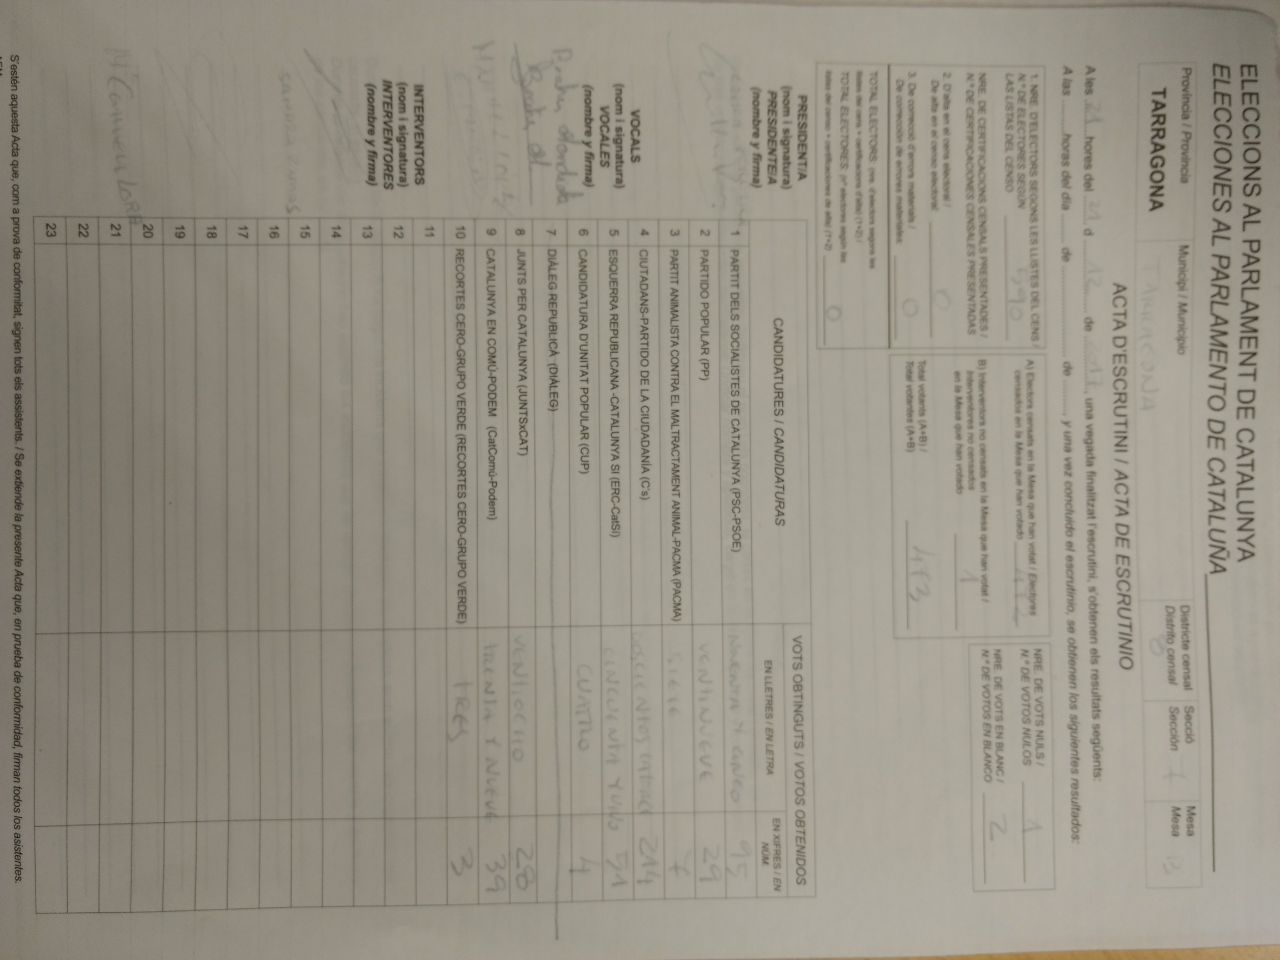 ELECCIONS AL PARLAMENT DE CATALUNYA
ELECCIONES AL PARLAMENTO DE CATALUÑA
Província / Provincia
TARRAGONA
Municipi / Municipio
TARRAGONA
Districte censal
Distrito censal
8
Secció
Sección
1
Mesa
Mesa
B
ACTA D'ESCRUTINI / ACTA DE ESCRUTINIO
A les 21 hores del 21 d 12 de 2017, una vegada finalitzat l'escrutini, s'obtenen els resultats següents:
A las horas del día de de , y una vez concluido el escrutinio, se obtienen los siguientes resultados:
1. NRE. D'ELECTORS SEGONS LES LLISTES DEL CENS /
N.º DE ELECTORES SEGÚN
LAS LISTAS DEL CENSO 590
NRE. DE CERTIFICACIONS CENSALS PRESENTADES /
N.º DE CERTIFICACIONES CENSALES PRESENTADAS
2. D'alta en el cens electoral /
De alta en el censo electoral: 0
3. De correcció d'errors materials /
De corrección de errores materiales: 0
TOTAL ELECTORS: (nre. d'electors segons les
llistes del cens + certificacions d'alta) (1+2) /
TOTAL ELECTORES: (nº electores según las
listas del censo + certificaciones de alta) (1+2) 0
A) Electors censats en la Mesa que han votat / Electores
censados en la Mesa que han votado
B) Interventors no censats en la Mesa que han votat /
Interventores no censados
en la Mesa que han votado 1
Total votants (A+B) /
Total votantes (A+B) 473
NRE. DE VOTS NULS /
N.º DE VOTOS NULOS 1
NRE. DE VOTS EN BLANC /
N.º DE VOTOS EN BLANCO 2
PRESIDENT/A
(nom i signatura)
PRESIDENTE/A
(nombre y firma)
VOCALS
(nom i signatura)
VOCALES
(nombre y firma)
INTERVENTORS
(nom i signatura)
INTERVENTORES
(nombre y firma)
CANDIDATURES / CANDIDATURAS
VOTS OBTINGUTS / VOTOS OBTENIDOS
EN LLETRES / EN LETRA
EN XIFRES / EN NÚM.
1 PARTIT DELS SOCIALISTES DE CATALUNYA (PSC-PSOE) NOVENTA Y CINCO 95
2 PARTIDO POPULAR (PP) VEINTINUEVE 29
3 PARTIT ANIMALISTA CONTRA EL MALTRACTAMENT ANIMAL-PACMA (PACMA) SIETE 7
4 CIUTADANS-PARTIDO DE LA CIUDADANÍA (C's) DOSCIENTOS CATORCE 214
5 ESQUERRA REPUBLICANA -CATALUNYA SI (ERC-CatSí) CINCUENTA Y UNO 51
6 CANDIDATURA D'UNITAT POPULAR (CUP) CUATRO 4
7 DIÀLEG REPUBLICÀ (DIÀLEG)
8 JUNTS PER CATALUNYA (JUNTSxCAT) VENTIOCHO 28
9 CATALUNYA EN COMÚ-PODEM (CatComú-Podem) TREINTA Y NUEVE 39
10 RECORTES CERO-GRUPO VERDE (RECORTES CERO-GRUPO VERDE) TRES 3
11
12
13
14
15
16
17
18
19
20
21
22
23
S'estén aquesta Acta que, com a prova de conformitat, signen tots els assistents. / Se extiende la presente Acta que, en prueba de conformidad, firman todos los asistentes.